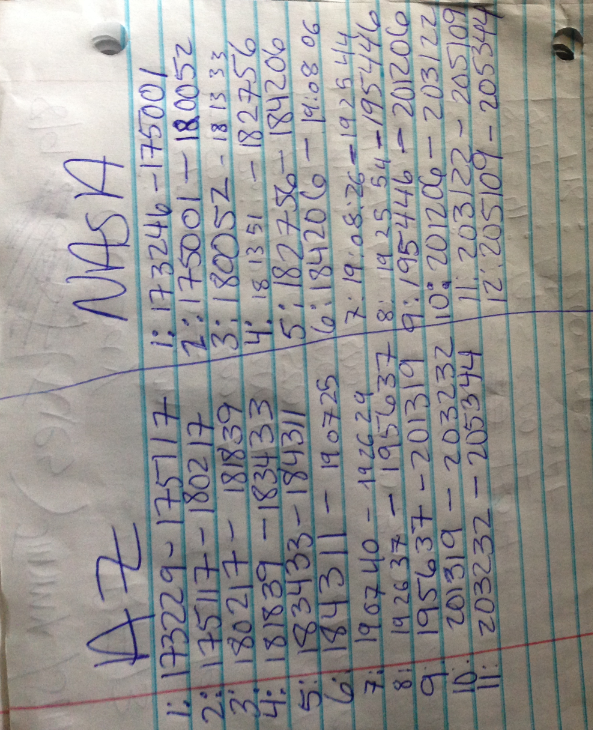 AZ
1: 173229 - 175117
2: 175117 - 180217
3: 180217 - 181839
4: 181839 - 183433
5: 183433 - 184311
6: 184311 - 190725
7: 190740 - 192629
8: 192637 - 195637
9: 195637 - 201319
10: 201319 - 203232
11: 203232 - 205344
NASA
1: 173246 - 175001
2: 175001 - 180052
3: 180052 - 181333
4: 181351 - 182756
5: 182756 - 184206
6: 184206 - 19:08:06
7: 19:08:26 - 192544
8: 192554 - 195446
9: 195446 - 201206
10: 201206 - 203122
11: 203122 - 205109
12: 205109 - 205344